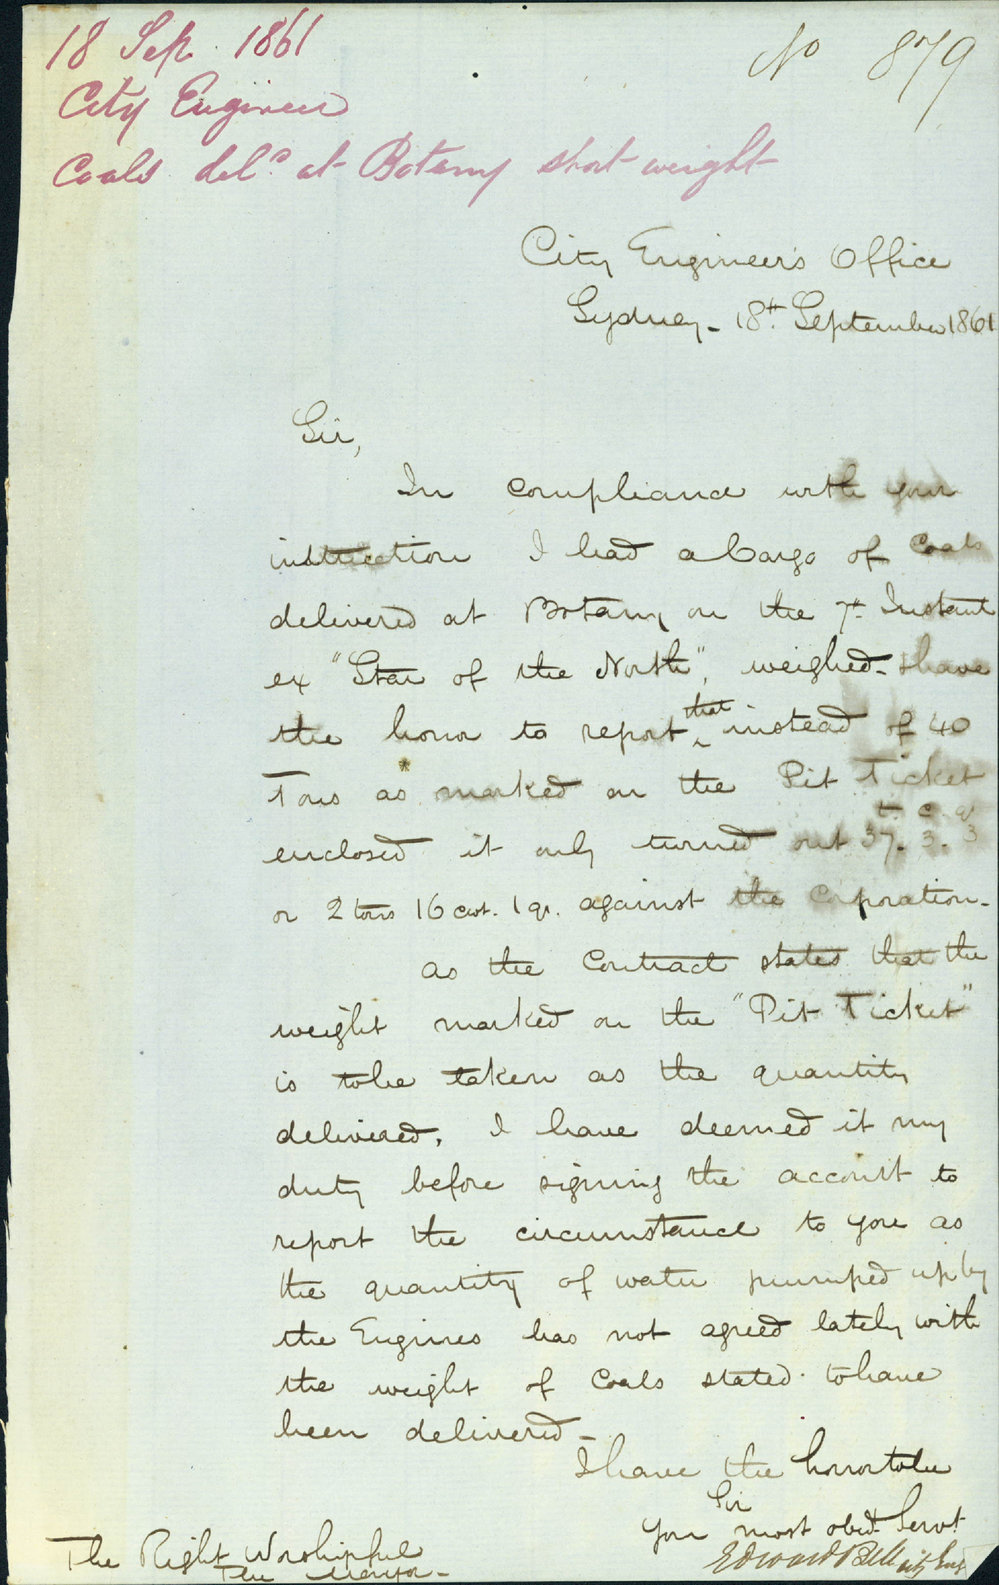 18 Sep. 1861
No 879
City Engineer
Coals deld. at Botany short weight
City Engineer's Office
Sydney - 18th. September 1861
Sir,
In compliance with your
instruction I had a Cargo of Coals
delivered at Botany on the 7th. Instant
ex "Star of the North", weighed - I have
the honor to report that instead of 40
Tons as marked on the Pit Ticket
t. c. q
enclosed it only turned out 37. 3. 3
or 2 tons 16 cwt. 1 qr. against the Corporation -
As the Contract states that the
weight marked on the "Pit Ticket"
is to be taken as the quantity
delivered, I have deemed it my
duty before signing the account to
report the circumstance to you as
the quantity of water pumped up by
the Engines has not agreed lately with
the weight of Coals stated to have
been delivered -
I have the honor to be
Sir
Your most obedt. Servt.
Edward Bell City Engr
The Right Worshipful
The Mayor -